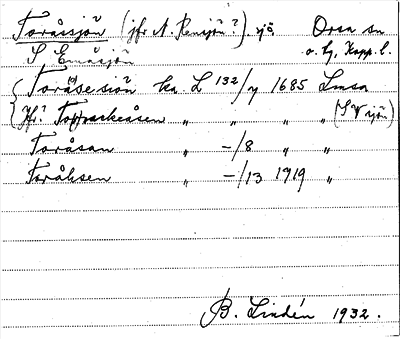 Toråssjön (jfr N. Rensjön?) sjö Orsa sn
S. Emåsjön o. tg, Kopp. l.
Toråsesiön ka. L 132/y 1685 Lmsa
Jfr? Torraskeåsen " " " " (SV sjön)
Toråsan " -/8 " "
Toråhsen " -/13 1919 "
B. Lindén 1932.